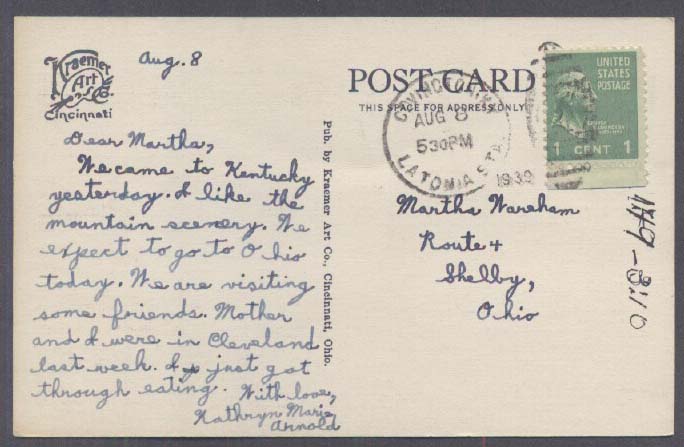 Kraemer
Art
Co.
Cincinnati
Aug. 8
Dear Martha,
We came to Kentucky
yesterday. I like the
mountain scenery. We
expect to go to Ohio
today. We are visiting
some friends. Mother
and I were in Cleveland
last week. I just got
through eating. With love,
Kathryn Marie
Arnold
Pub. by Kraemer Art Co., Cincinnati, Ohio.
POST CARD
THIS SPACE FOR ADDRESS ONLY
COVINGTON, KY.
AUG 8
530PM
1939
LATONIA STA.
UNITED
STATES
POSTAGE
1 CENT 1
Martha Wareham
Route 4
Shelby,
Ohio